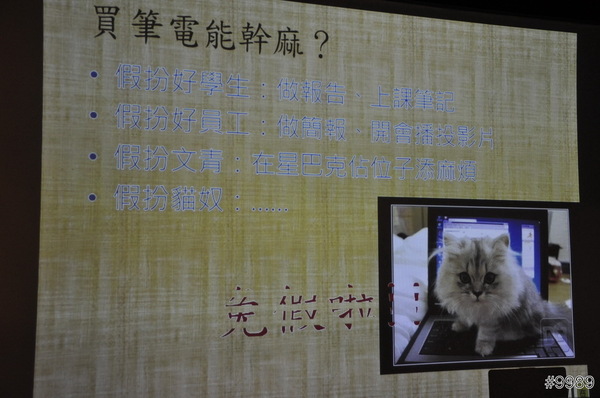 買筆電能幹麻？
• 假扮好學生：做報告、上課筆記
• 假扮好員工：做簡報、開會播投影片
• 假扮文青：在星巴克佔位子添麻煩
• 假扮貓奴：......
免假啦
#9989